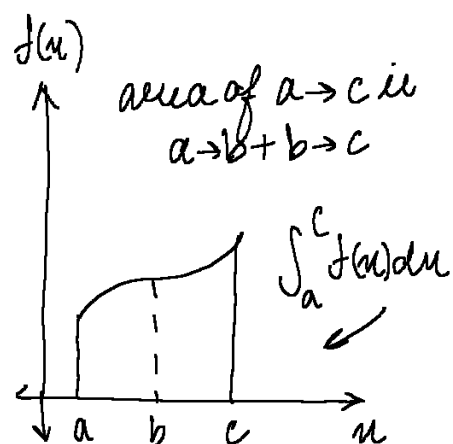 f(x)
area of a→c is
a→b + b→c
∫_a^c f(x)dx
a b c x